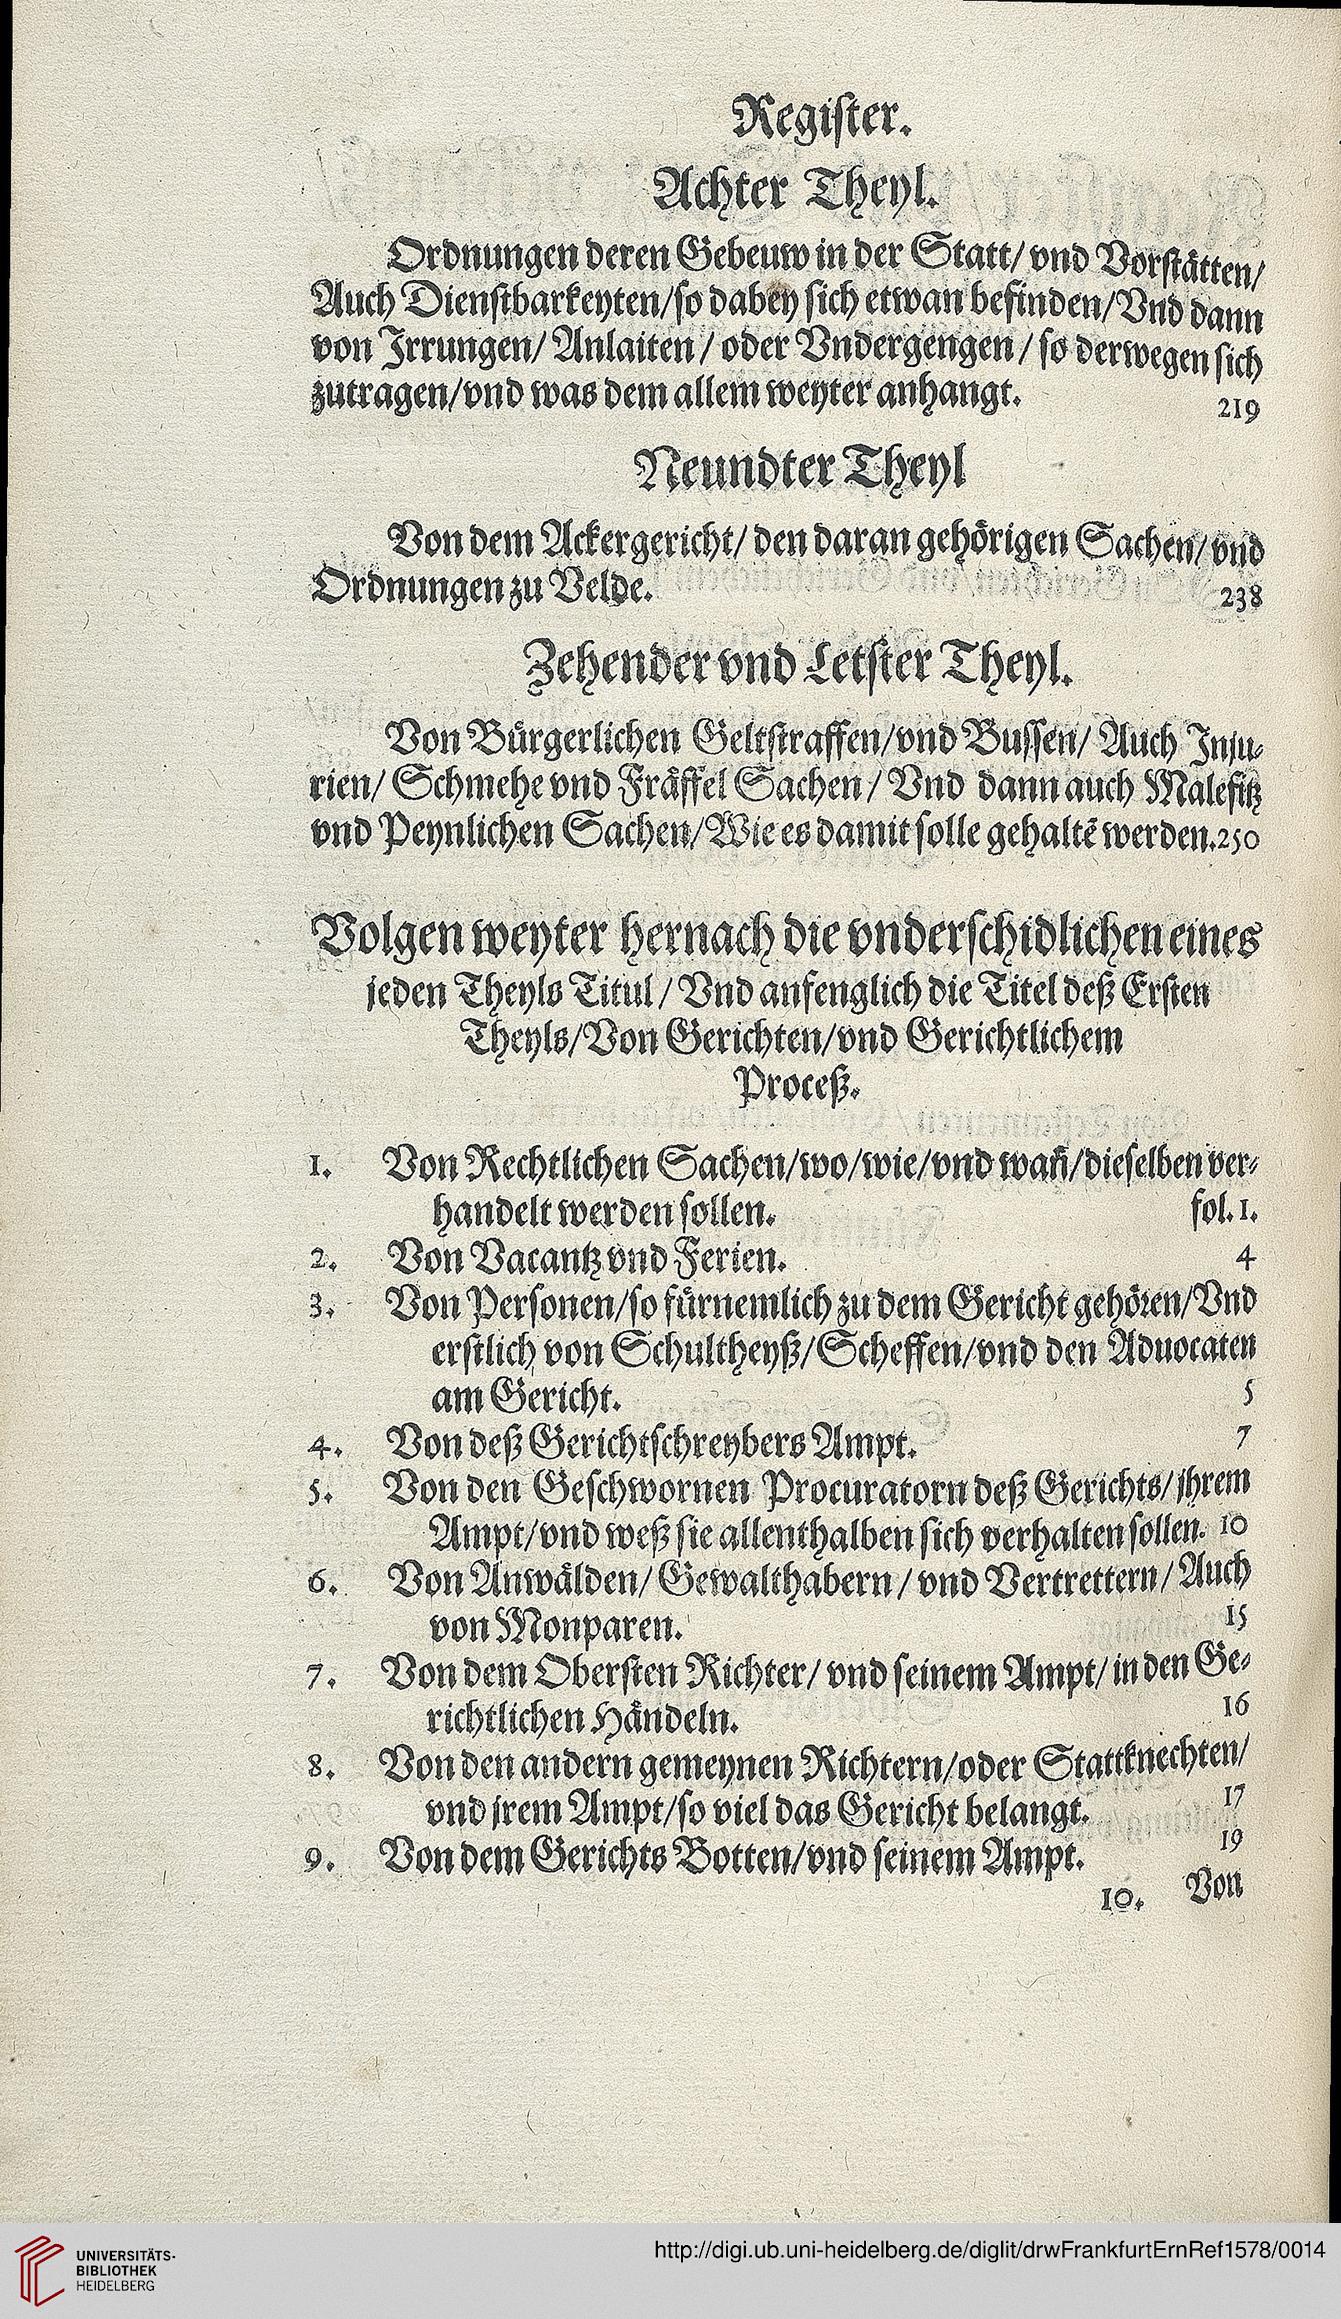 Register.
Achter Theyl.
Ordnungen deren Gebeuw in der Statt/ vnd Vorstätten/
Auch Dienstbarkeyten/so dabey sich etwan befinden/Vnd dann
von Irrungen/ Anlaiten / oder Vndergengen / so derwegen sich
zutragen/vnd was dem allem weyter anhangt. 219
Neundter Theyl
Von dem Ackergericht/ den daran gehörigen Sachen/ vnd
Ordnungen zu Velde. 238
Zehender vnd Letster Theyl.
Von Bürgerlichen Geltstraffen/vnd Bussen/ Auch Inju-
rien/ Schmehe vnd Fräffel Sachen / Vnd dann auch Malefitz
vnd Peynlichen Sachen/Wie es damit solle gehaltē werden.250
Volgen weyter hernach die vnderschidlichen eines
jeden Theyls Titul / Vnd anfenglich die Titel deß Ersten
Theyls/Von Gerichten/vnd Gerichtlichem
Proceß.
1. Von Rechtlichen Sachen/wo/wie/vnd wañ/dieselben ver-
handelt werden sollen. fol. 1.
2. Von Vacantz vnd Ferien. 4
3. Von Personen/so fürnemlich zu dem Gericht gehören/Vnd
erstlich von Schultheyß/Scheffen/vnd den Aduocaten
am Gericht. 5
4. Von deß Gerichtschreybers Ampt. 7
5. Von den Geschwornen Procuratorn deß Gerichts/ jhrem
Ampt/vnd weß sie allenthalben sich verhalten sollen. 10
6. Von Anwälden/ Gewalthabern / vnd Vertrettern/ Auch
von Monparen. 15
7. Von dem Obersten Richter/ vnd seinem Ampt/ in den Ge-
richtlichen Händeln. 16
8. Von den andern gemeynen Richtern/oder Stattknechten/
vnd jrem Ampt/so viel das Gericht belangt. 17
9. Von dem Gerichts Botten/vnd seinem Ampt. 19
10. Von
UNIVERSITÄTS-
BIBLIOTHEK
HEIDELBERG
http://digi.ub.uni-heidelberg.de/diglit/drwFrankfurtErnRef1578/0014